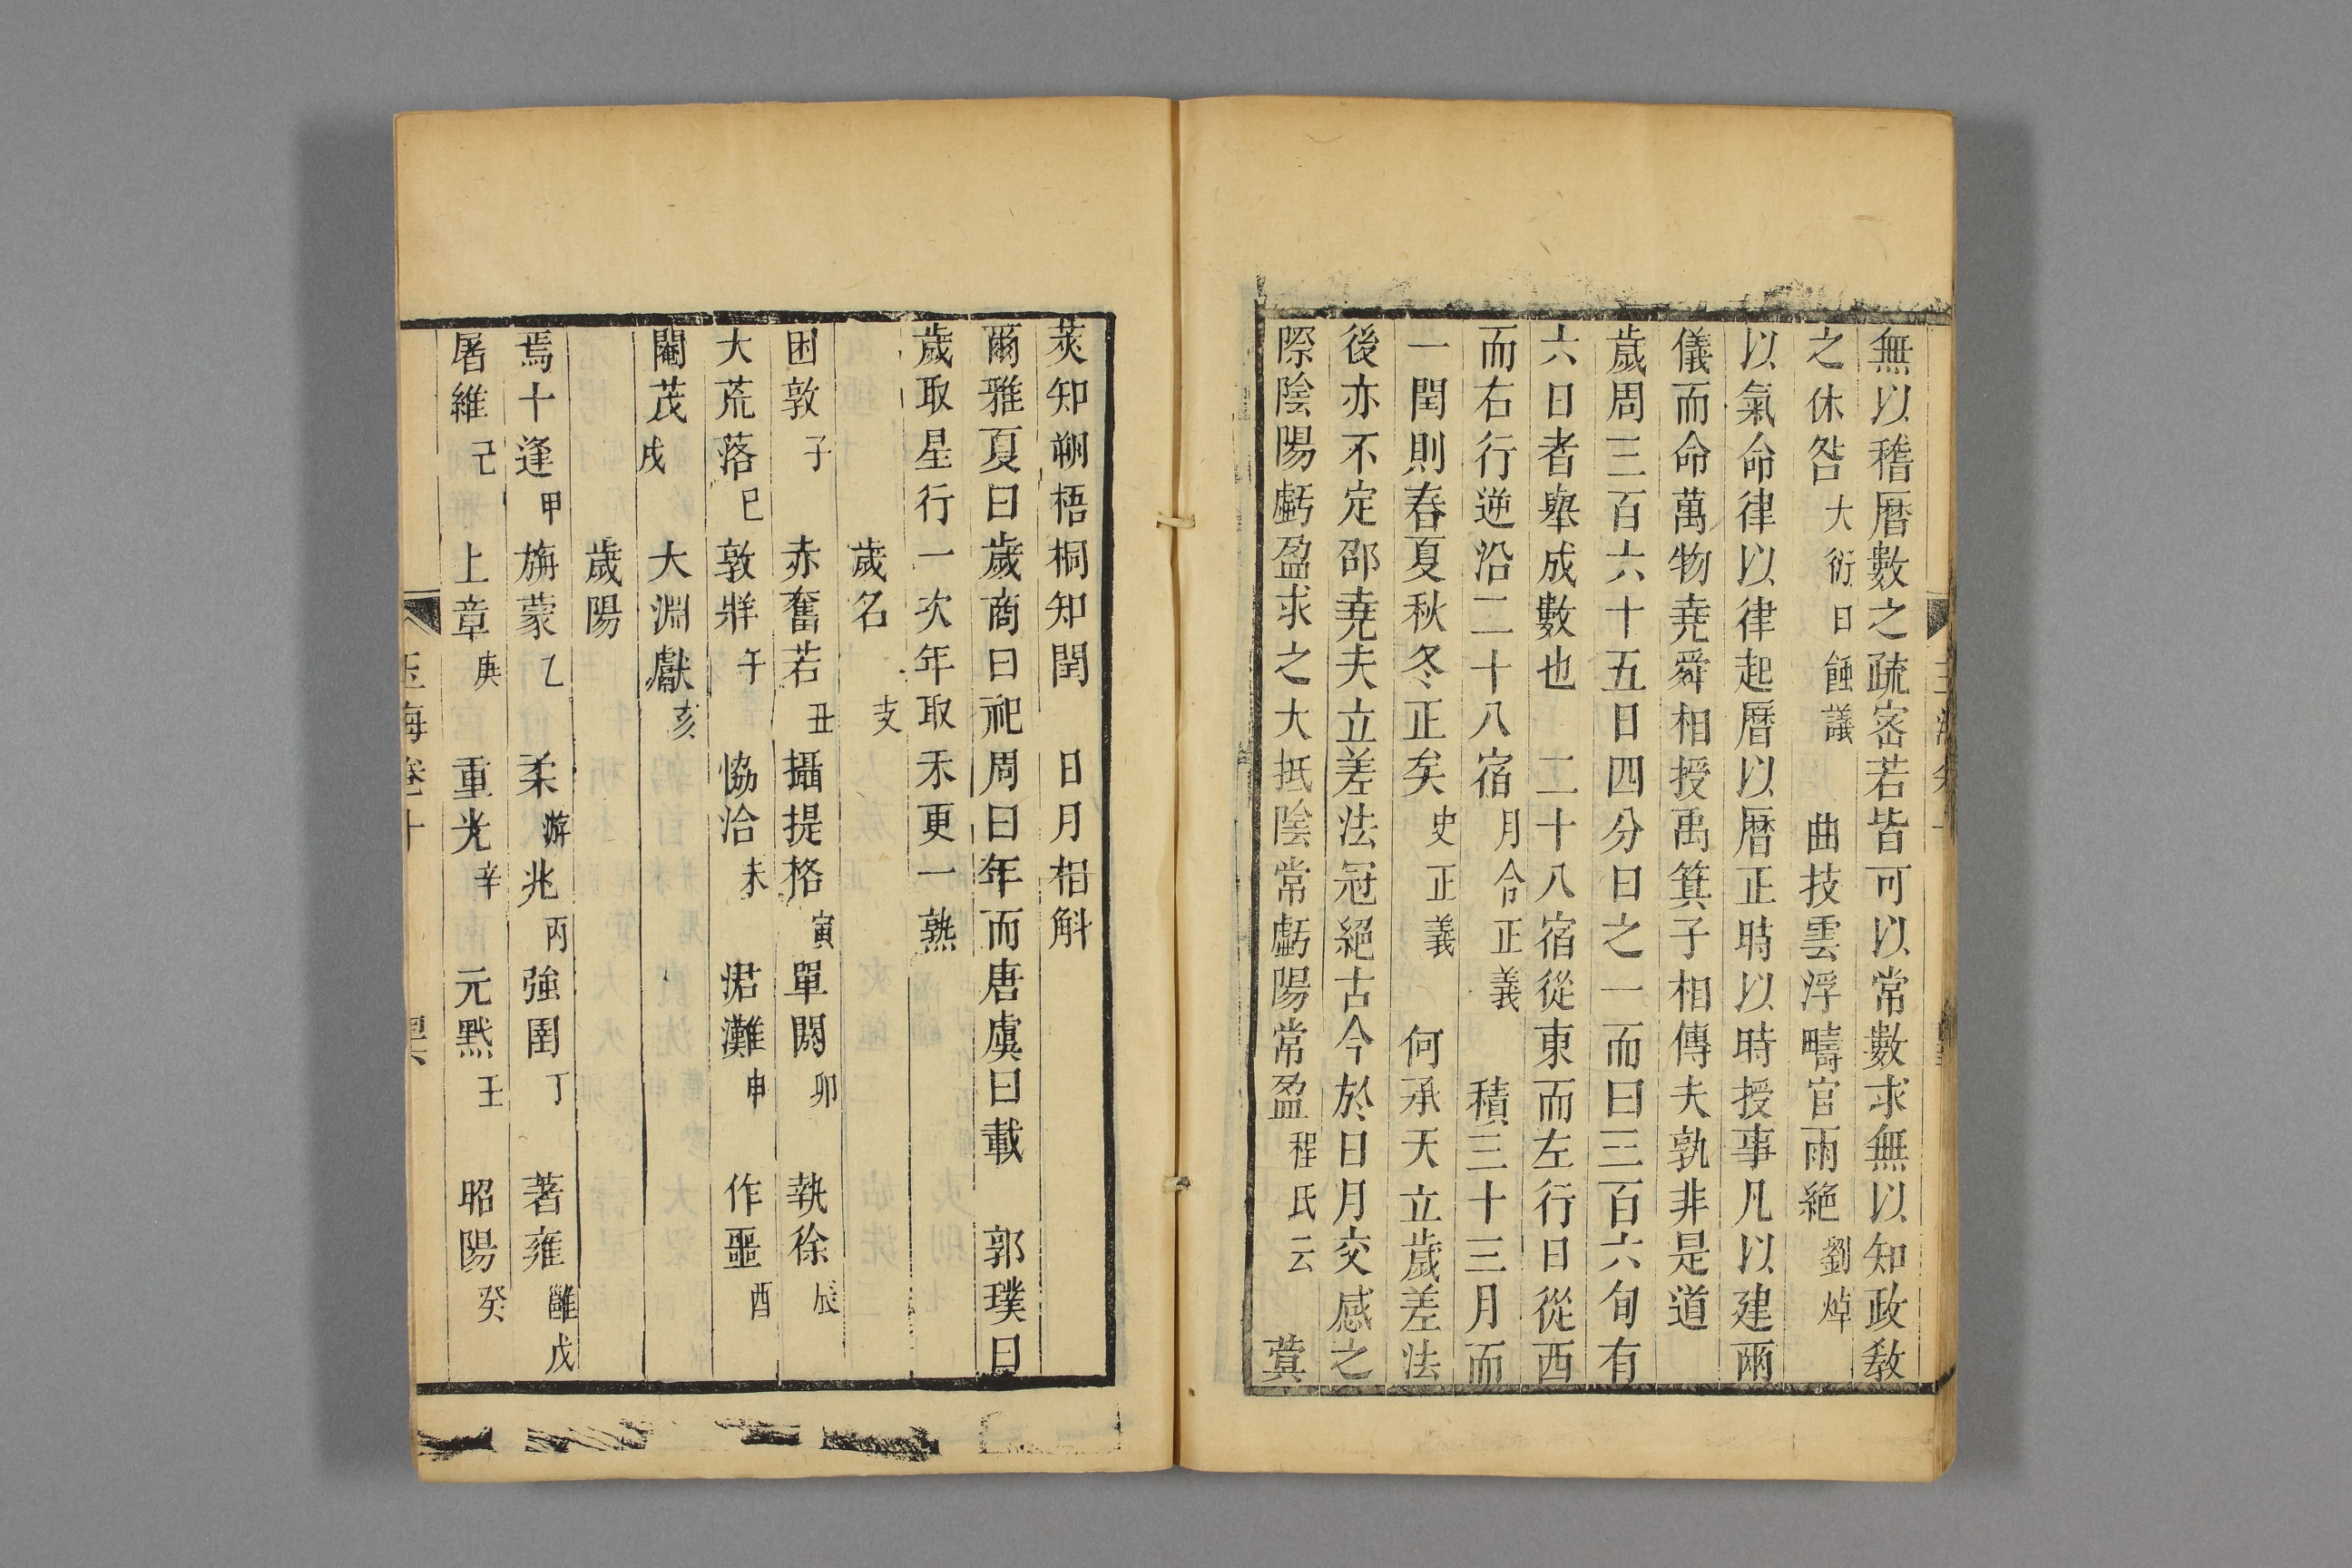 無以稽曆數之疏密若皆可以常數求無以知政教
之休咎大衍日蝕議 曲技雲浮疇官雨絶劉焯
以氣命律以律起曆以曆正時以時授事凡以建兩
儀而命萬物堯舜相授禹箕子相傳夫孰非是道
歲周三百六十五日四分日之一而曰三百六旬有
六日者舉成數也 二十八宿從東而左行日從西
而右行逆沿二十八宿月令正義 積三十三月而
一閏則春夏秋冬正矣史正義 何承天立歲差法
後亦不定邵堯夫立差法冠絕古今於日月交感之
際陰陽虧盈求之大抵陰常虧陽常盈程氏云 蓂
莢知朔梧桐知閏 日月相斛
爾雅夏曰歲商曰祀周曰年而唐虞曰載 郭璞曰
歲取星行一次年取禾更一熟
歲名 支
困敦子 赤奮若丑 攝提格寅 單閼卯 執徐辰
大荒落巳 敦牂午 恊洽未 涒灘申 作噩酉
閹茂戌 大淵獻亥
歲陽
焉十逢甲 旃蒙乙 柔游兆丙 強圉丁 著雍雝戊
屠維己 上章庚 重光辛 元黙壬 昭陽癸
玉海卷十